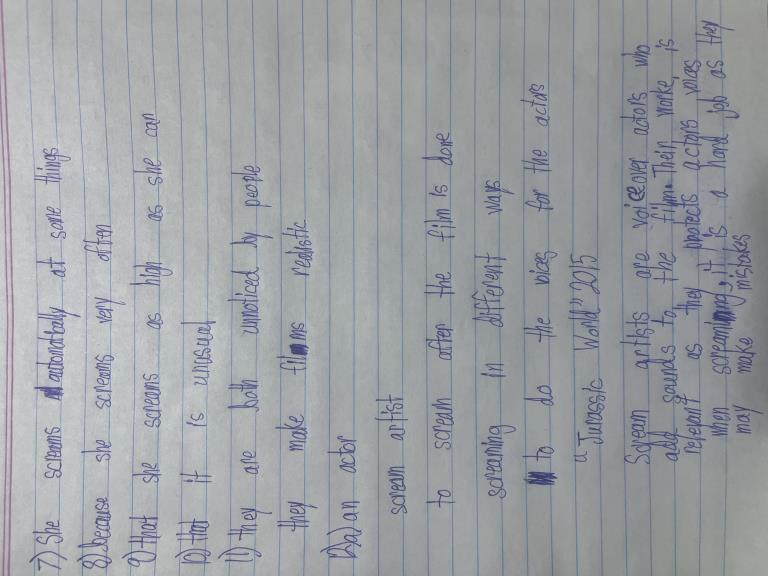 7) She screams automatically at some things
8) because she screams very often
9) that she screams as high as she can
10) that it is unusual
11) they are both unoticed by people
they make films realistic
12)a) an actor
scream artist
to scream after the film is done
screaming in different ways
to do the vices for the actors
"Jurassic World" 2015
Scream artists are voiceover actors who
add sounds to the film. Their worke, is
relevant as they protects actors vioas
when screaming, it is a hard job as they
may make mistakes